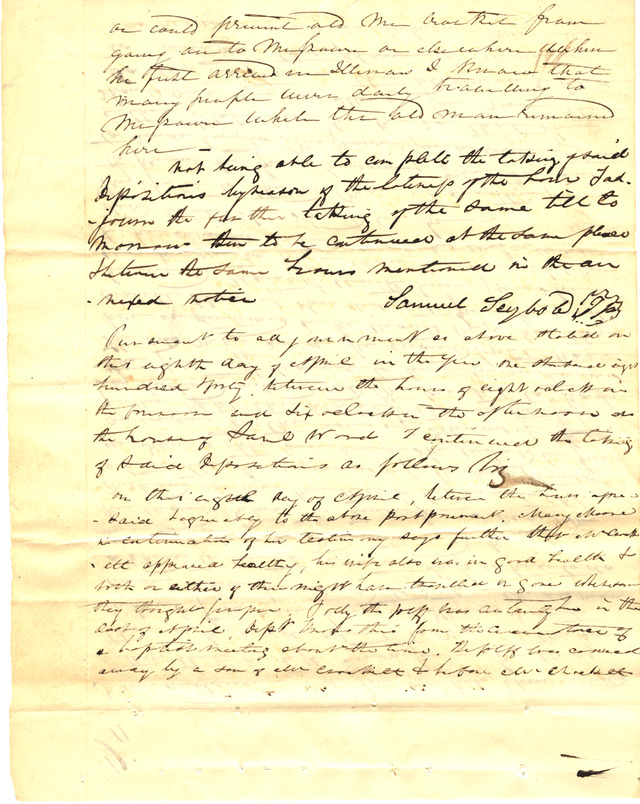 or could prevent old Mr Crocket from
going on to Missouri or elsewhere when
he first arrived in Illinois I know that
many people were daily travelling to
Missouri while the old man remained
here —
not being able to complete the taking of said
Depositions by reason of the lateness of the hour I ad-
-journ the further taking of the same till to
morrow then to be continued at the same place
& between the same hours mentioned in the an
-nexed notice Samuel Seybold J.P.
Pursuant to adjournment as above stated on
this eighth day of April in the year one thousand eight
hundred forty. between the hours of eight oclock in
the forenoon and six oclock in the afternoon at
the house of Saml Word I continued the taking
of said depositions as follows Viz
on this eighth day of April, between the hours afore
-said & agreeably to the above postponement, Mary Moore
in continuation of her testimony says further that Mr Crock
-ett appeared healthy, his wife also was in good health &
both or either of them might have travelled or gone wherever
they thought proper. Polly the plff was taken in the
last of April, Dept knows this from the circumstance of
a baptist meeting about the time. The plff was carried
away by a son of Mr Crockett & before Mr Crockett